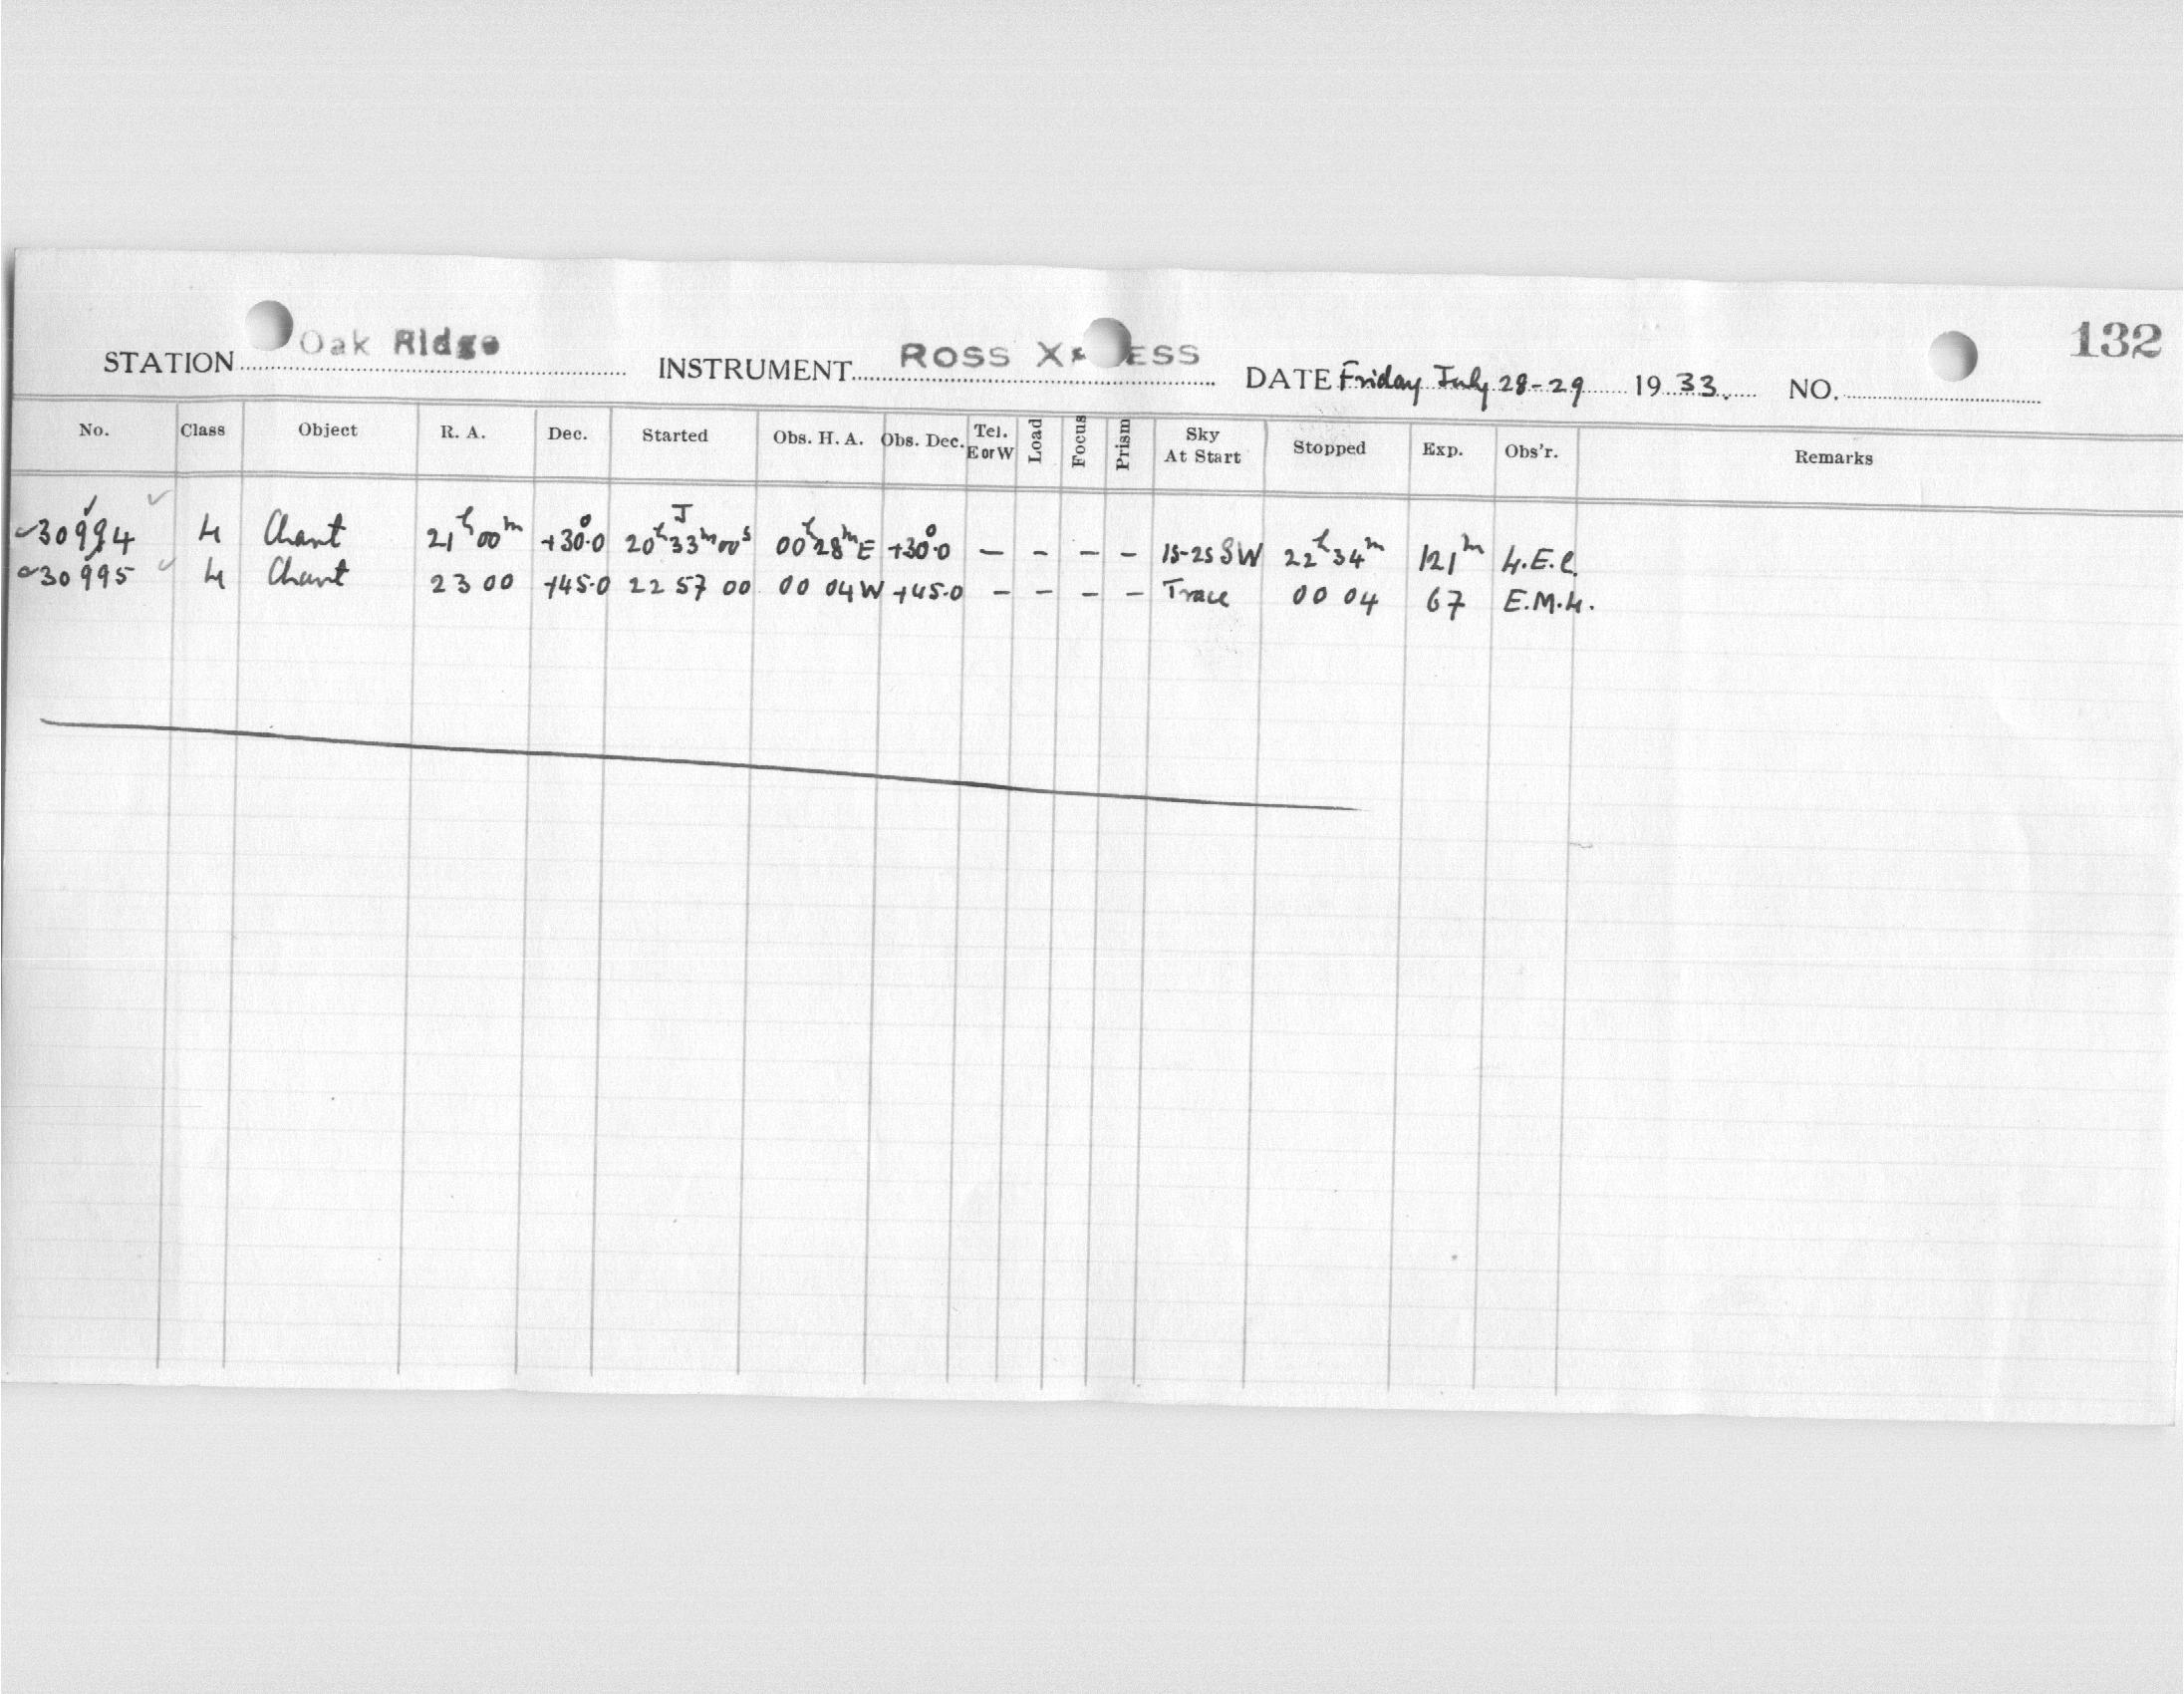 132
STATION Oak Ridge INSTRUMENT ROSS X ESS DATE Friday July 28-29 1933. NO.
No. Class Object R. A. Dec. Started Obs. H. A. Obs. Dec. Tel. E or W Load Focus Prism Sky At Start Stopped Exp. Obs'r. Remarks
J
30994 4 Chart 21h 00m +30°.0 20h 33m 00s 00h 28m E +30°.0 — - - - 15-25 SW 22h 34m 121m L.E.C.
30995 4 Chart 23 00 +45.0 22 57 00 00 04 W +45.0 - - - - Trace 00 04 67 E.M.L.